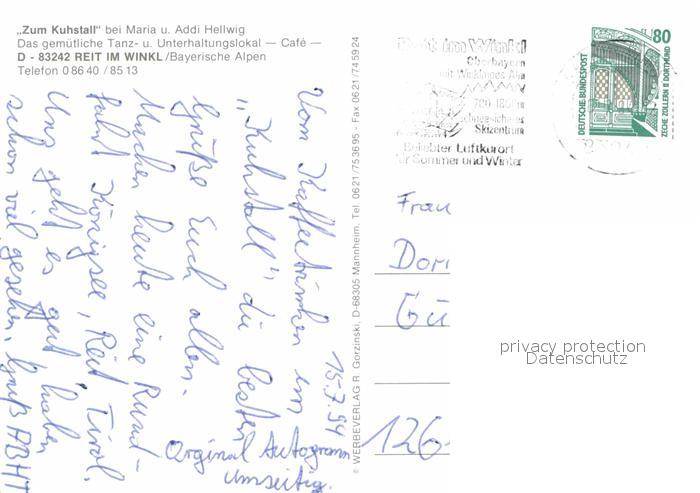 „Zum Kuhstall“ bei Maria u. Addi Hellwig
Das gemütliche Tanz- u. Unterhaltungslokal — Café —
D - 83242 REIT IM WINKL/Bayerische Alpen
Telefon 0 86 40 / 85 13
15.7.94
Vom Kaffeetrinken im
"Kuhstall" die besten
Grüße Euch allen.
Machen heute eine Rund-
fahrt Königsee, Reit, Tirol.
Uns geht es gut haben
schon viel gesehen. Gruß
Orginal Autogramm
umseitig.
© WERBEVERLAG R. Gorzinski, D-68305 Mannheim, Tel. 0621/753695 - Fax 0621/745924
Reit im Winkl
Oberbayern
mit Winklmoos-Alm
Schneesicheres
Skizentrum
Beliebter Luftkurort
für Sommer und Winter
80
DEUTSCHE BUNDESPOST
ZECHE ZOLLERN II DORTMUND
Frau
Dori
Gü
126
privacy protection
Datenschutz